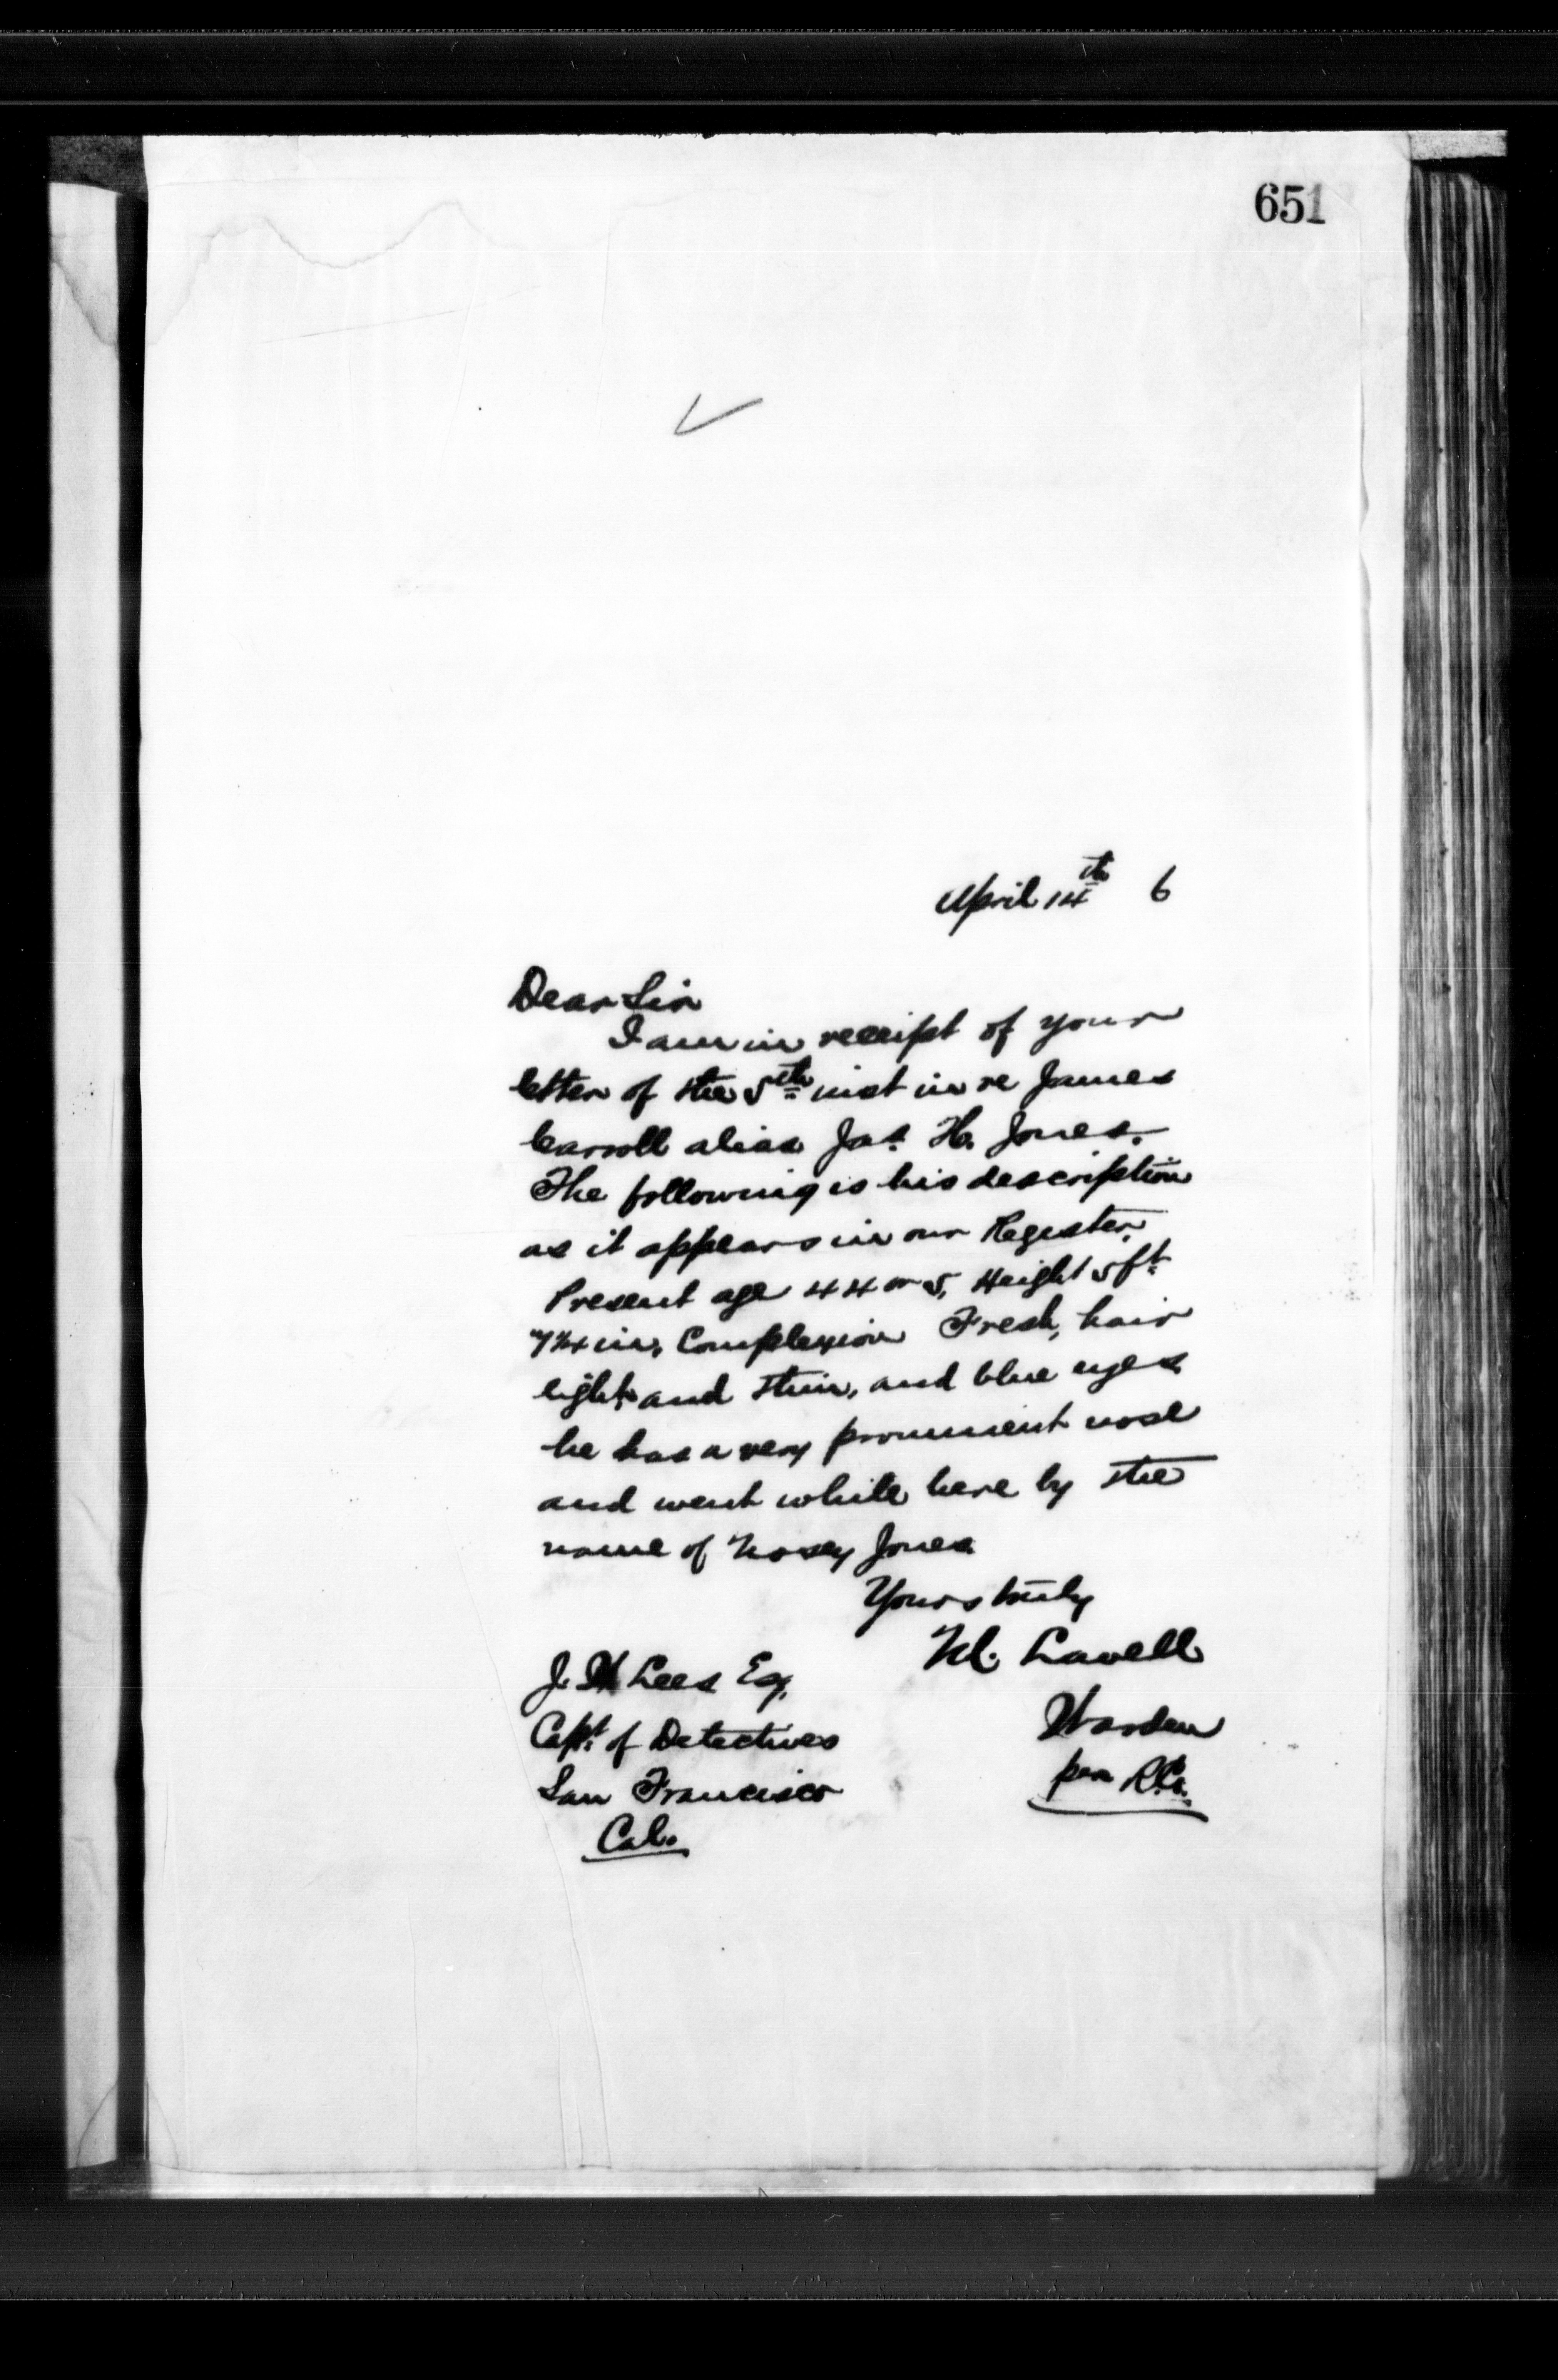 651
April 14th 6
Dear Sir
I am in receipt of your
letter of the 5th inst in re James
Carroll alias Jas. H. Jones.
The following is his description
as it appears in our Register.
Present age 44 or 5, Height 5 ft.
7¼ in, Complexion Fresh, hair
light and thin, and blue eyes
he has a very prominent nose
and went while here by the
name of Nosey Jones
Yours truly
M. Lavell
Warden
per
J. W Lees Esq,
Capt. of Detectives
San Francisco
Cal.